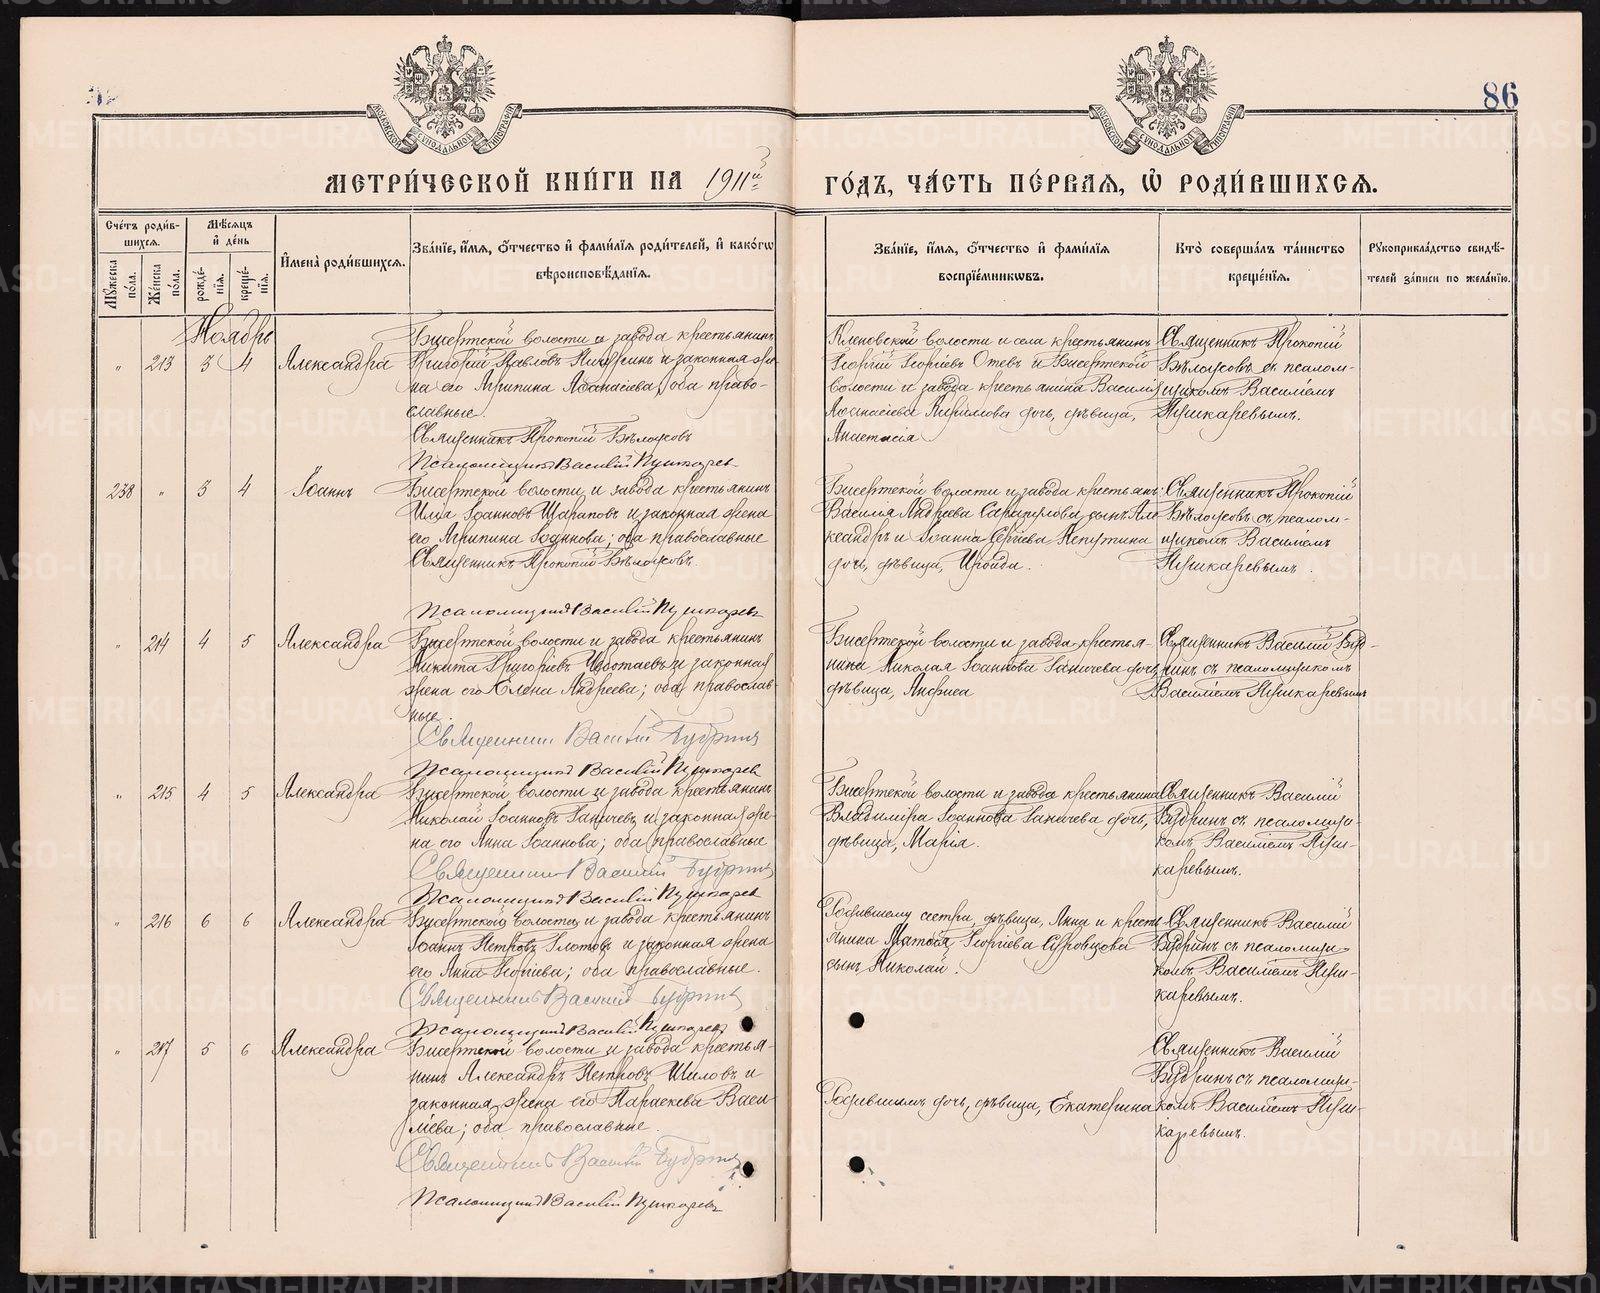 86
МОСКОВСКОЙ СѴНОДАЛЬНОЙ ТИПОГРАФІИ
МОСКОВСКОЙ СѴНОДАЛЬНОЙ ТИПОГРАФІИ
МЕТРИ́ЧЕСКОЙ КНИ́ГИ НА 1911й ГО́ДЪ, ЧА́СТЬ ПЕ́РВАЯ, Ѡ РОДИ́ВШИХСЯ.
Сче́тъ роди́в-
шихся.
Мѣ́сяцъ
и̂ де́нь
Мꙋ́жеска по́ла.
Же́нска по́ла.
рожде́-
нїя.
креще́-
нїя.
И̂мена̀ роди́вшихся.
Зва́нїе, и̂́мя, ѻ́тчество и̂ фами́лїя роди́телей, и̂ како́гѡ
вѣроисповѣ́данїя.
Зва́нїе, и̂́мя, ѻ́тчество и̂ фами́лїя
воспрїе́мникѡвъ.
Кто̀ соверша́лъ та́инство
креще́нїя.
Рꙋкоприкла́дство свидѣ́-
телей за́писи по жела́нїю.
Ноябрь
" 213 3 4 Александра
Бисертской волости и завода крестьянинъ
Григорій Павловъ и законная же-
на его Агрипина Афанасіева, оба право-
славные.
Священникъ Прокопій Бѣлоусовъ
Псаломщикъ Василій Пушкарев
Кленовской волости и села крестьянинъ
Георгій Георгіевъ Отевъ и Бисертской
волости и завода крестьянина Василія
Афанасіева Кирилова дочь, дѣвица,
Анастасія
Священникъ Прокопій
Бѣлоусовъ съ псалом-
щикомъ Василіемъ
Пушкаревымъ.
238 " 3 4 Іоаннъ
Бисертской волости и завода крестьянинъ
Илія Іоанновъ Шараповъ и законная жена
его Агрипина Іоаннова; оба православные
Священникъ Прокопій Бѣлоусовъ.
Псаломщикъ Василій Пушкаревъ
Бисертской волости и завода крестьянъ:
Василія Андреева Сарапулова сынъ Але-
ксандръ и Іоанна Сергіева Пепутина
дочь, дѣвица, Ираида.
Священникъ Прокопій
Бѣлоусовъ съ псалом-
щикомъ Василіемъ
Пушкаревымъ.
" 214 4 5 Александра
Бисертской волости и завода крестьянинъ
Никита Григоріевъ Чеботаевъ и законная
жена его Елена Андреева; оба православ-
ные.
Священникъ Василій Будринъ
Псаломщикъ Василій Пушкарев
Бисертской волости и завода крестья-
нина Николая Іоаннова Ганичева дочь,
дѣвица, Анфиса
Священникъ Василій Буд-
ринъ съ псаломщикомъ
Василіемъ Пушкаревымъ
" 215 4 5 Александра
Бисертской волости и завода крестьянинъ
Николай Іоанновъ Ганичевъ и законная же-
на его Анна Іоаннова; оба православные
Священникъ Василій Будринъ
Псаломщикъ Василій Пушкарев
Бисертской волости и завода крестьянина
Владиміра Іоаннова Ганичева дочь,
дѣвица, Марія.
Священникъ Василій
Будринъ съ псаломщи-
комъ Василіемъ Пуш-
каревымъ.
" 216 6 6 Александра
Бисертской волости и завода крестьянинъ
Іоаннъ Петровъ Глотовъ и законная жена
его Анна Георгіева; оба православные.
Священникъ Василій Будринъ
Псаломщикъ Василій Пушкаревъ
Родившему сестра, дѣвица, Анна и кресть-
янина Матѳія Георгіева Суровцова
сынъ Николай.
Священникъ Василій
Будринъ съ псаломщи-
комъ Василіемъ Пуш-
каревымъ.
" 217 5 6 Александра
Бисертской волости и завода крестья-
нинъ Александръ Петровъ Шиловъ и
законная жена его Параскева Васи-
ліева; оба православные.
Священникъ Василій Будринъ
Псаломщикъ Василій Пушкаревъ
Родившимъ дочь, дѣвица, Екатерина
Священникъ Василій
Будринъ съ псаломщи-
комъ Василіемъ Пуш-
каревымъ.
METRIKI.GASO-URAL.RU